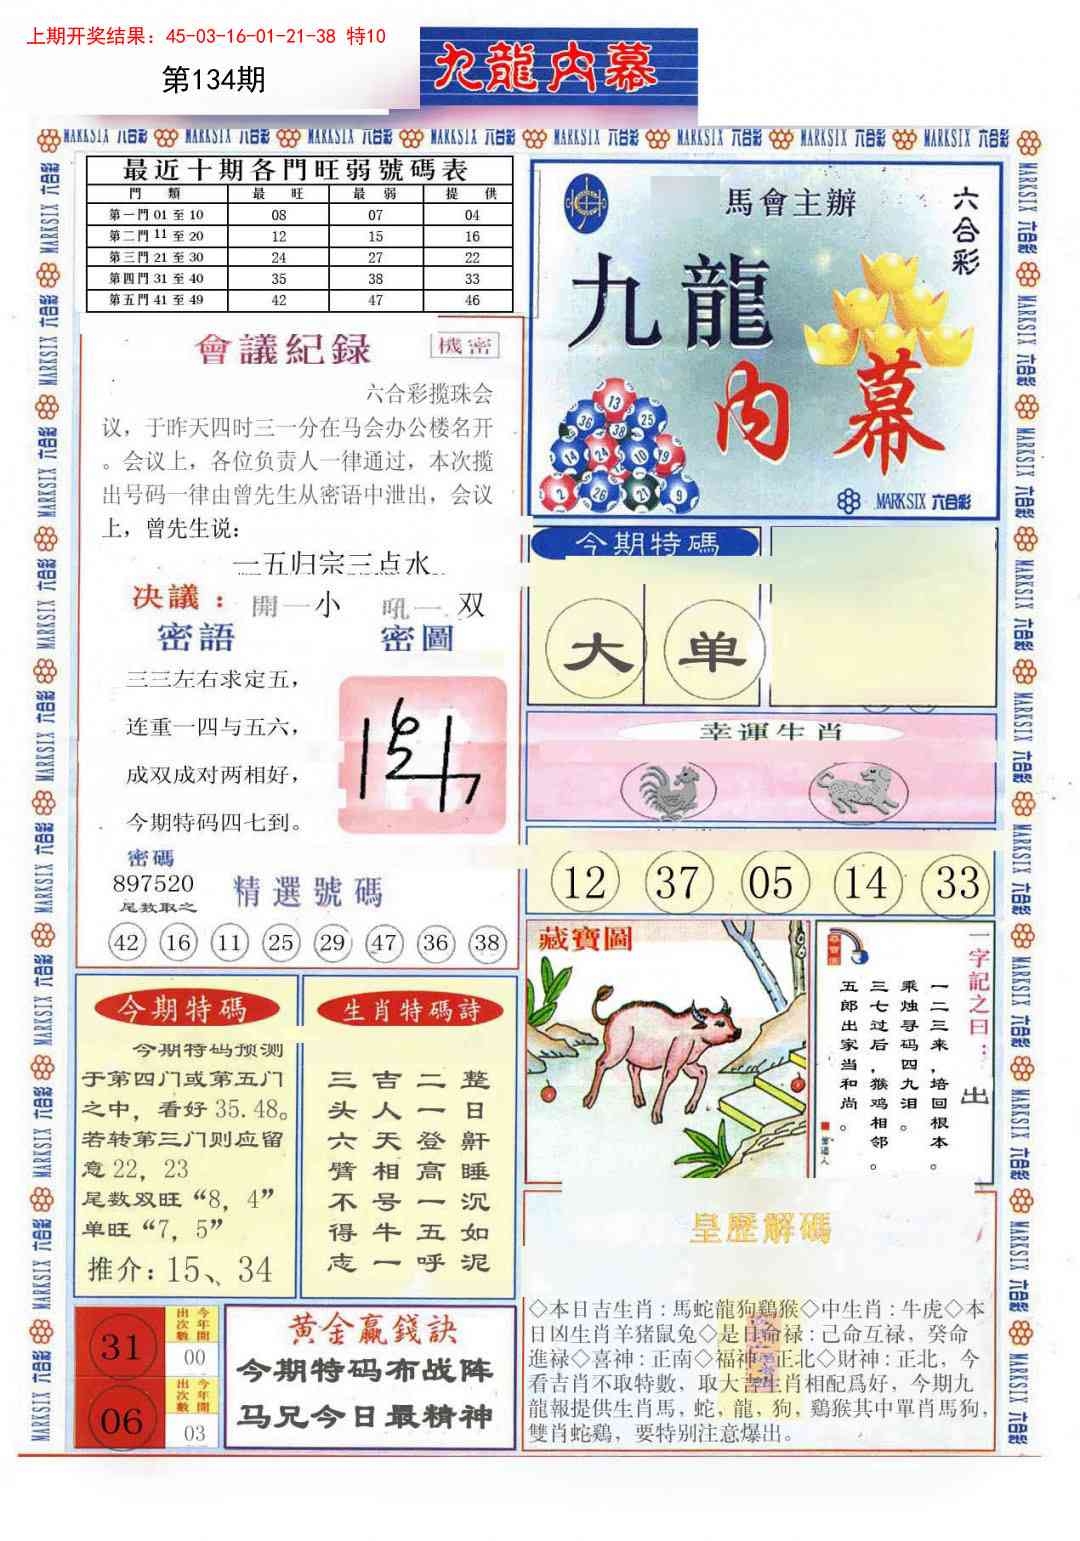 上期开奖结果：45-03-16-01-21-38 特10
第134期
九龍内幕
MARKSIX 六合彩
最近十期各門旺弱號碼表
門類 最旺 最弱 提供
第一門 01 至 10 08 07 04
第二門 11 至 20 12 15 16
第三門 21 至 30 24 27 22
第四門 31 至 40 35 38 33
第五門 41 至 49 42 47 46
馬會主辦
六合彩
九龍
内幕
13
36 25
38
14 24 10 19
2 26 21 9
MARKSIX 六合彩
會議紀録
機密
六合彩揽珠会
议，于昨天四时三一分在马会办公楼名开
。会议上，各位负责人一律通过，本次揽
出号码一律由曾先生从密语中泄出，会议
上，曾先生说：
一五归宗三点水
决議：開一小 吼一双
密語 密圖
三三左右求定五，
连重一四与五六，
成双成对两相好，
今期特码四七到。
密碼
897520
尾数取之
精選號碼
42 16 11 25 29 47 36 38
今期特碼
大 单
幸運生肖
12 37 05 14 33
今期特碼
今期特码预测
于第四门或第五门
之中，看好 35.48。
若转第三门则应留
意 22，23
尾数双旺“8，4”
单旺“7，5”
推介：15、34
生肖特碼詩
整日鼾睡沉如泥
二一登高一五呼
吉人天相号牛一
三头六臂不得志
藏寶圖
一字記之曰：出
一二三来，培回根本。
乘烛寻码四九泪。
三七过后，猴鸡相邻。
五郎出家当和尚。
皇歷解碼
◇本日吉生肖：馬蛇龍狗鷄猴◇中生肖：牛虎◇本
日凶生肖羊猪鼠兔◇是日命禄：己命互禄，癸命
進禄◇喜神：正南◇福神：正北◇財神：正北，今
看吉肖不取特數，取大吉生肖相配爲好，今期九
龍報提供生肖馬，蛇，龍，狗，鷄猴其中單肖馬狗，
雙肖蛇鷄，要特别注意爆出。
31
今年開出次數
00
06
今年開出次數
03
黄金赢錢訣
今期特码布战阵
马兄今日最精神